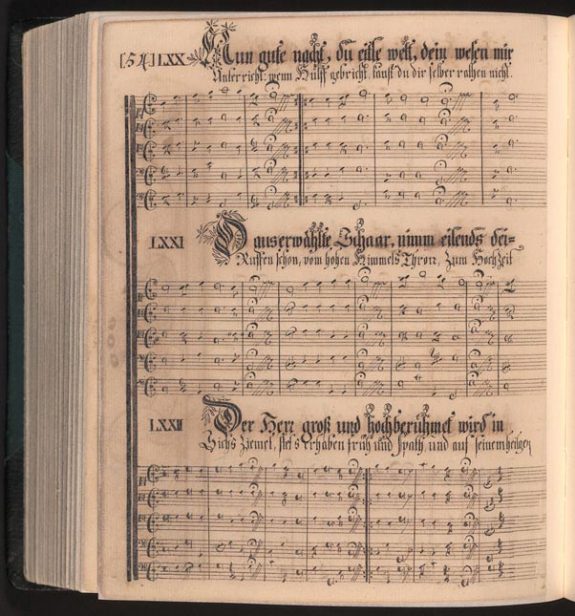 [54] LXX Nun gute nacht, du eitle welt, dein wesen mir
Unterricht: wenn Hülff gebricht, kanst du dir selber rathen nicht.
LXXI O auserwählte Schaar, nimm eilends dei-
Ruffen schon, vom hohen Himmels Thron, Zum Hochzeit
LXXII Der Herr groß und hochberühmet wird in
Sichs Ziemet, stets erhaben früh und spath, und auf seinem heilgen